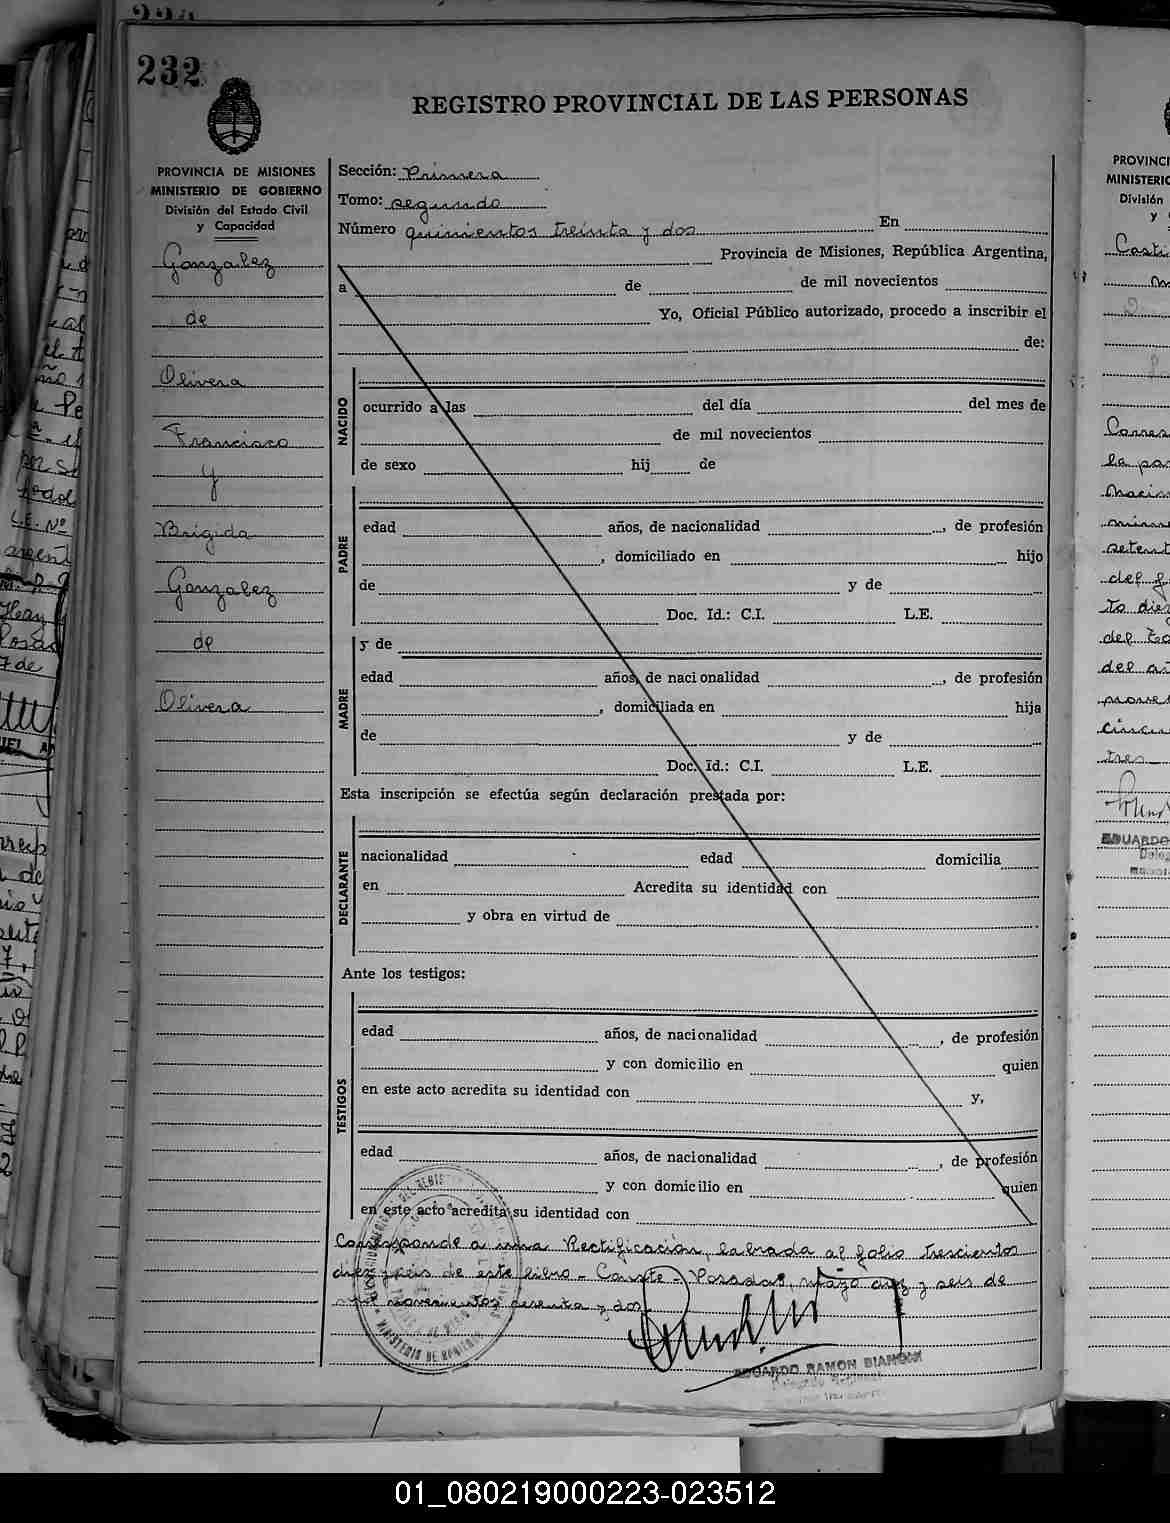 232
REGISTRO PROVINCIAL DE LAS PERSONAS
PROVINCIA DE MISIONES
MINISTERIO DE GOBIERNO
División del Estado Civil
y Capacidad
Gonzalez
de
Olivera
Francisco
y
Brígida
Gonzalez
de
Olivera
Sección: Primera
Tomo: segundo
Número quinientos treinta y dos En
Provincia de Misiones, República Argentina,
a de de mil novecientos
Yo, Oficial Público autorizado, procedo a inscribir el
de:
NACIDO
ocurrido a las del día del mes de
de mil novecientos
de sexo hij de
PADRE
edad años, de nacionalidad , de profesión
, domiciliado en hijo
de y de
Doc. Id.: C.I. L.E.
MADRE
y de
edad años, de nacionalidad , de profesión
, domiciliada en hija
de y de
Doc. Id.: C.I. L.E.
Esta inscripción se efectúa según declaración prestada por:
DECLARANTE
nacionalidad edad domicilia
en Acredita su identidad con
y obra en virtud de
Ante los testigos:
TESTIGOS
edad años, de nacionalidad , de profesión
y con domicilio en quien
en este acto acredita su identidad con y,
edad años, de nacionalidad , de profesión
y con domicilio en quien
en este acto acredita su identidad con
Corresponde a una Rectificación, labrada al folio trescientos
diez y seis de este libro - Conste - Posadas, mayo diez y seis de
mil novecientos setenta y dos
MINISTERIO DE GOBIERNO
EDUARDO RAMON BIANCHI
PROVINCI
MINISTERIO
División
y
L.E. Nº
7 de
del
tres
EDUARDO
01_080219000223-023512